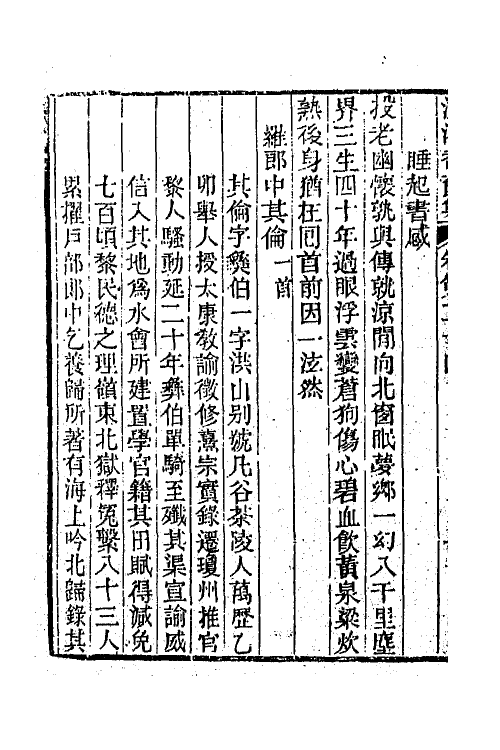 睡起書感
投老幽懷孰與傳就涼閒向北窗眠夢鄉一幻入千里塵
界三生四十年過眼浮雲變蒼狗傷心碧血飲黃泉粱炊
熟後身猶在回首前因一泫然
羅郎中其倫一首
其倫字彜伯一字洪山别號凡谷茶陵人萬歷乙
卯舉人授太康敎諭徵修熹宗實錄遷瓊州推官
黎人騷動延二十年彜伯單騎至殲其渠宣諭威
信入其地爲水會所建置學官籍其田賦得減免
七百頃黎民德之理嶺東北獄釋冤繫八十三人
累擢戸部郎中乞養歸所著有海上吟北歸錄其